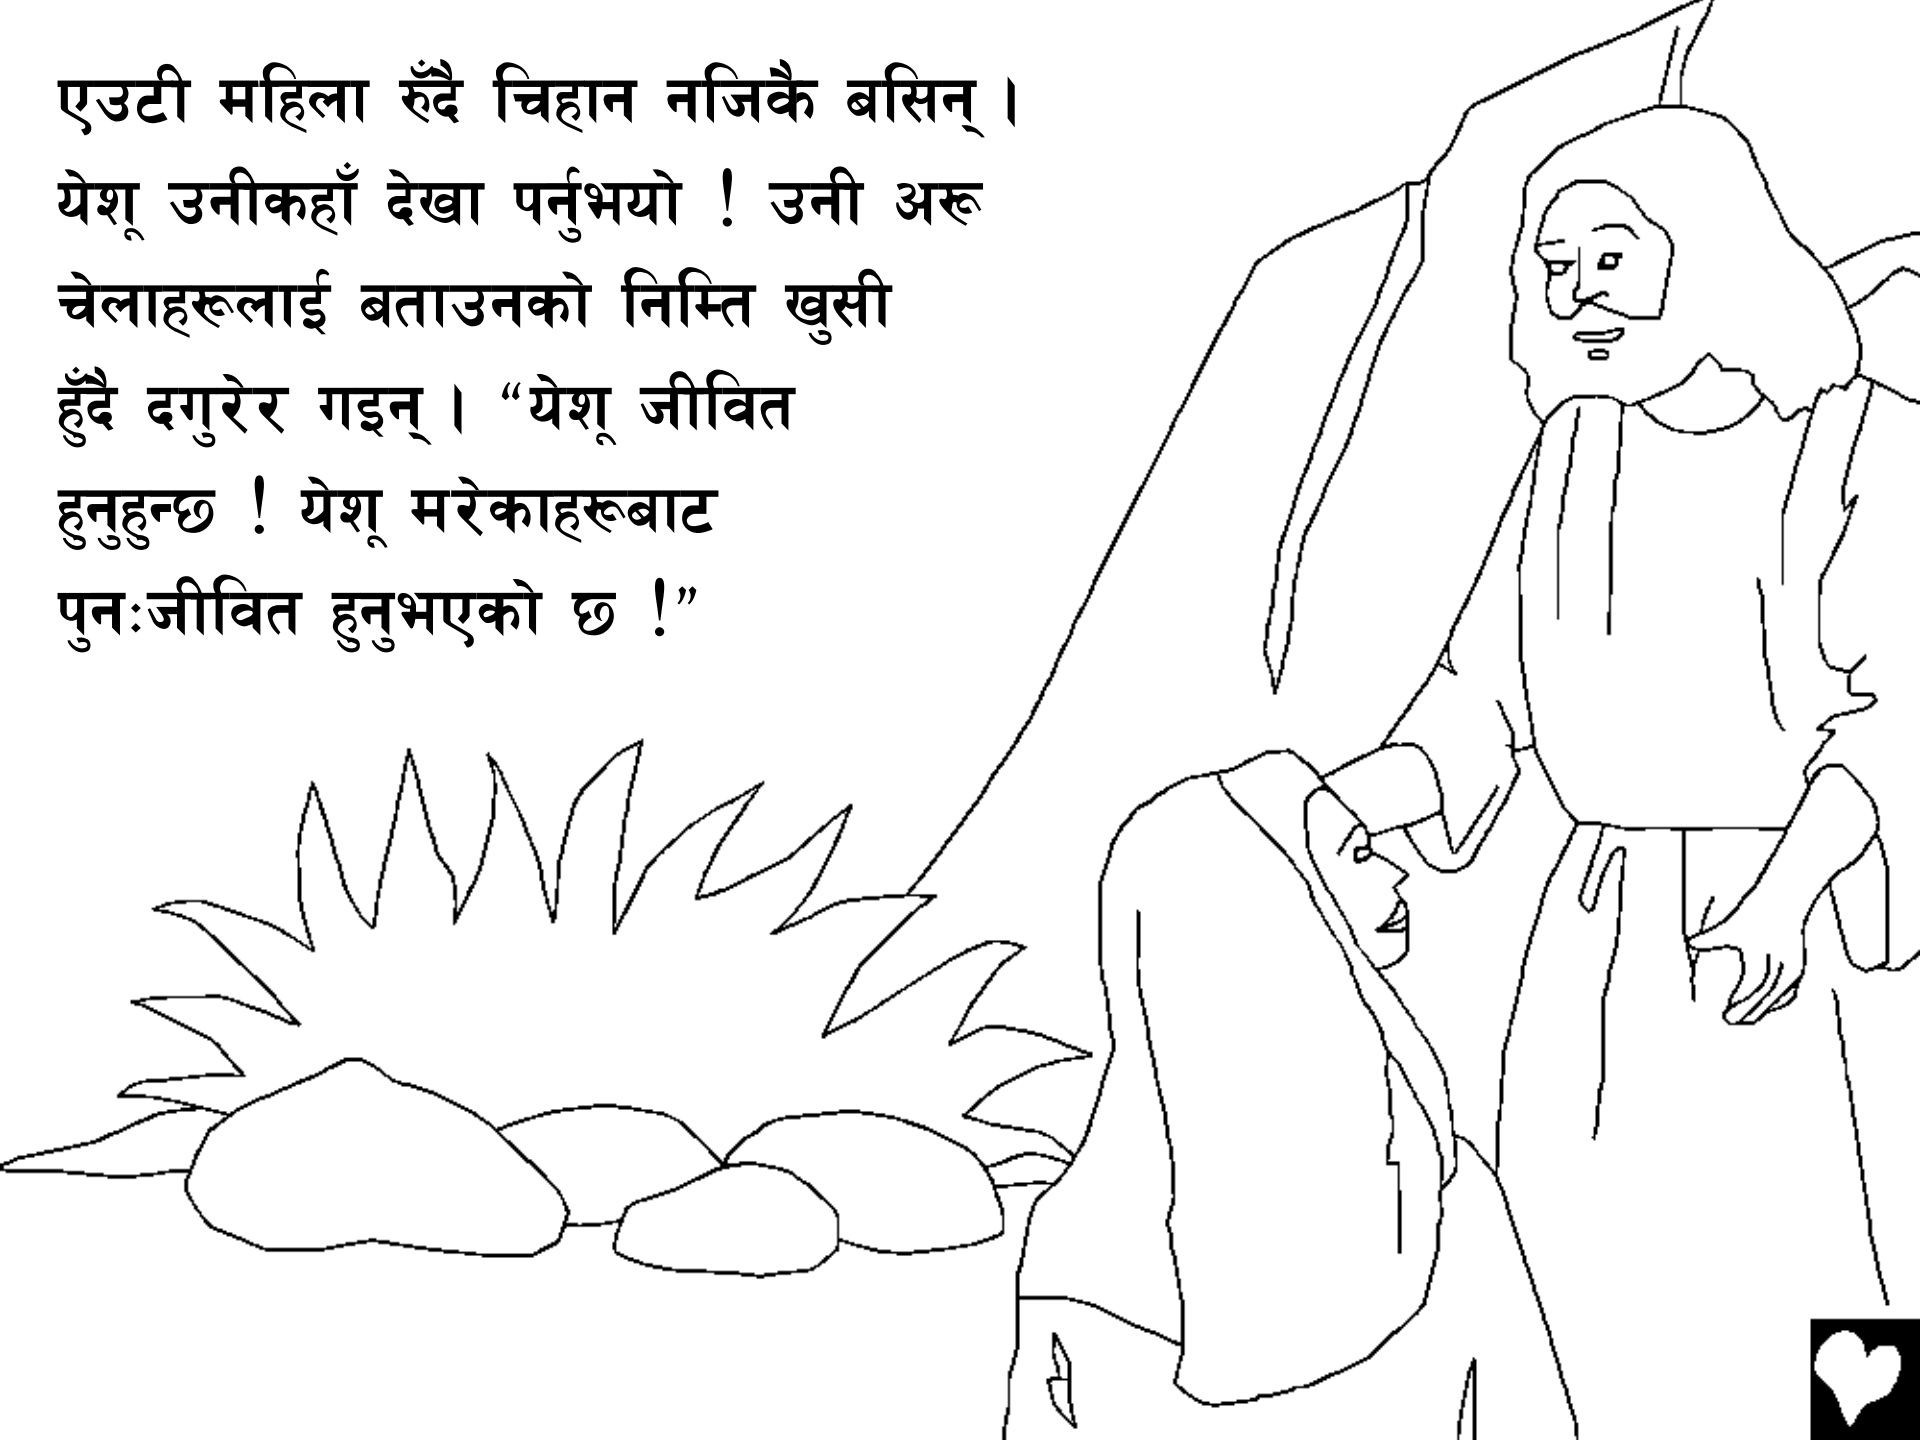 एउटी महिला रुँदै चिहान नजिकै बसिन् ।
येशू उनीकहाँ देखा पर्नुभयो ! उनी अरू
चेलाहरूलाई बताउनको निम्ति खुसी
हुँदै दगुरेर गइन् । “येशू जीवित
हुनुहुन्छ ! येशू मरेकाहरूबाट
पुनःजीवित हुनुभएको छ !”